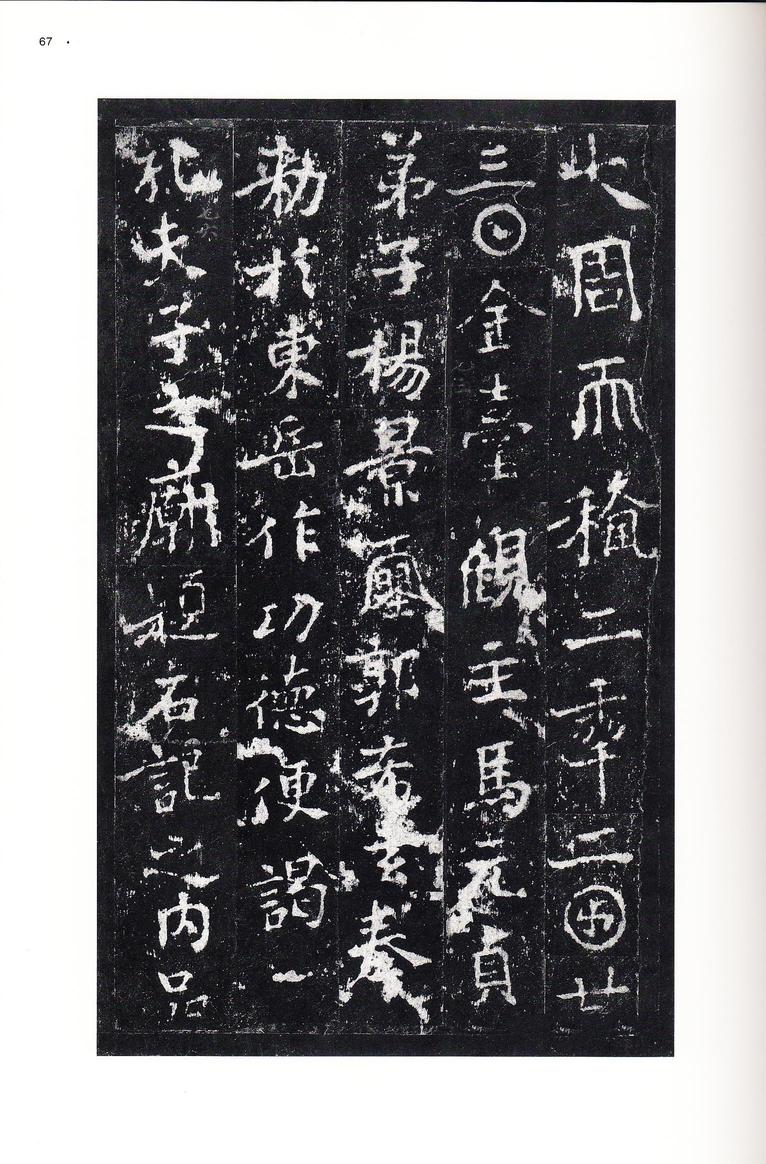 67
大周𠀑𥠢二𠡦二𠥱廿
三𡆠金臺觀主馬元貞
弟子楊景𡔈郭希玄奉
勑於東岳作功德便謁一
孔夫子之廟題石記之內品